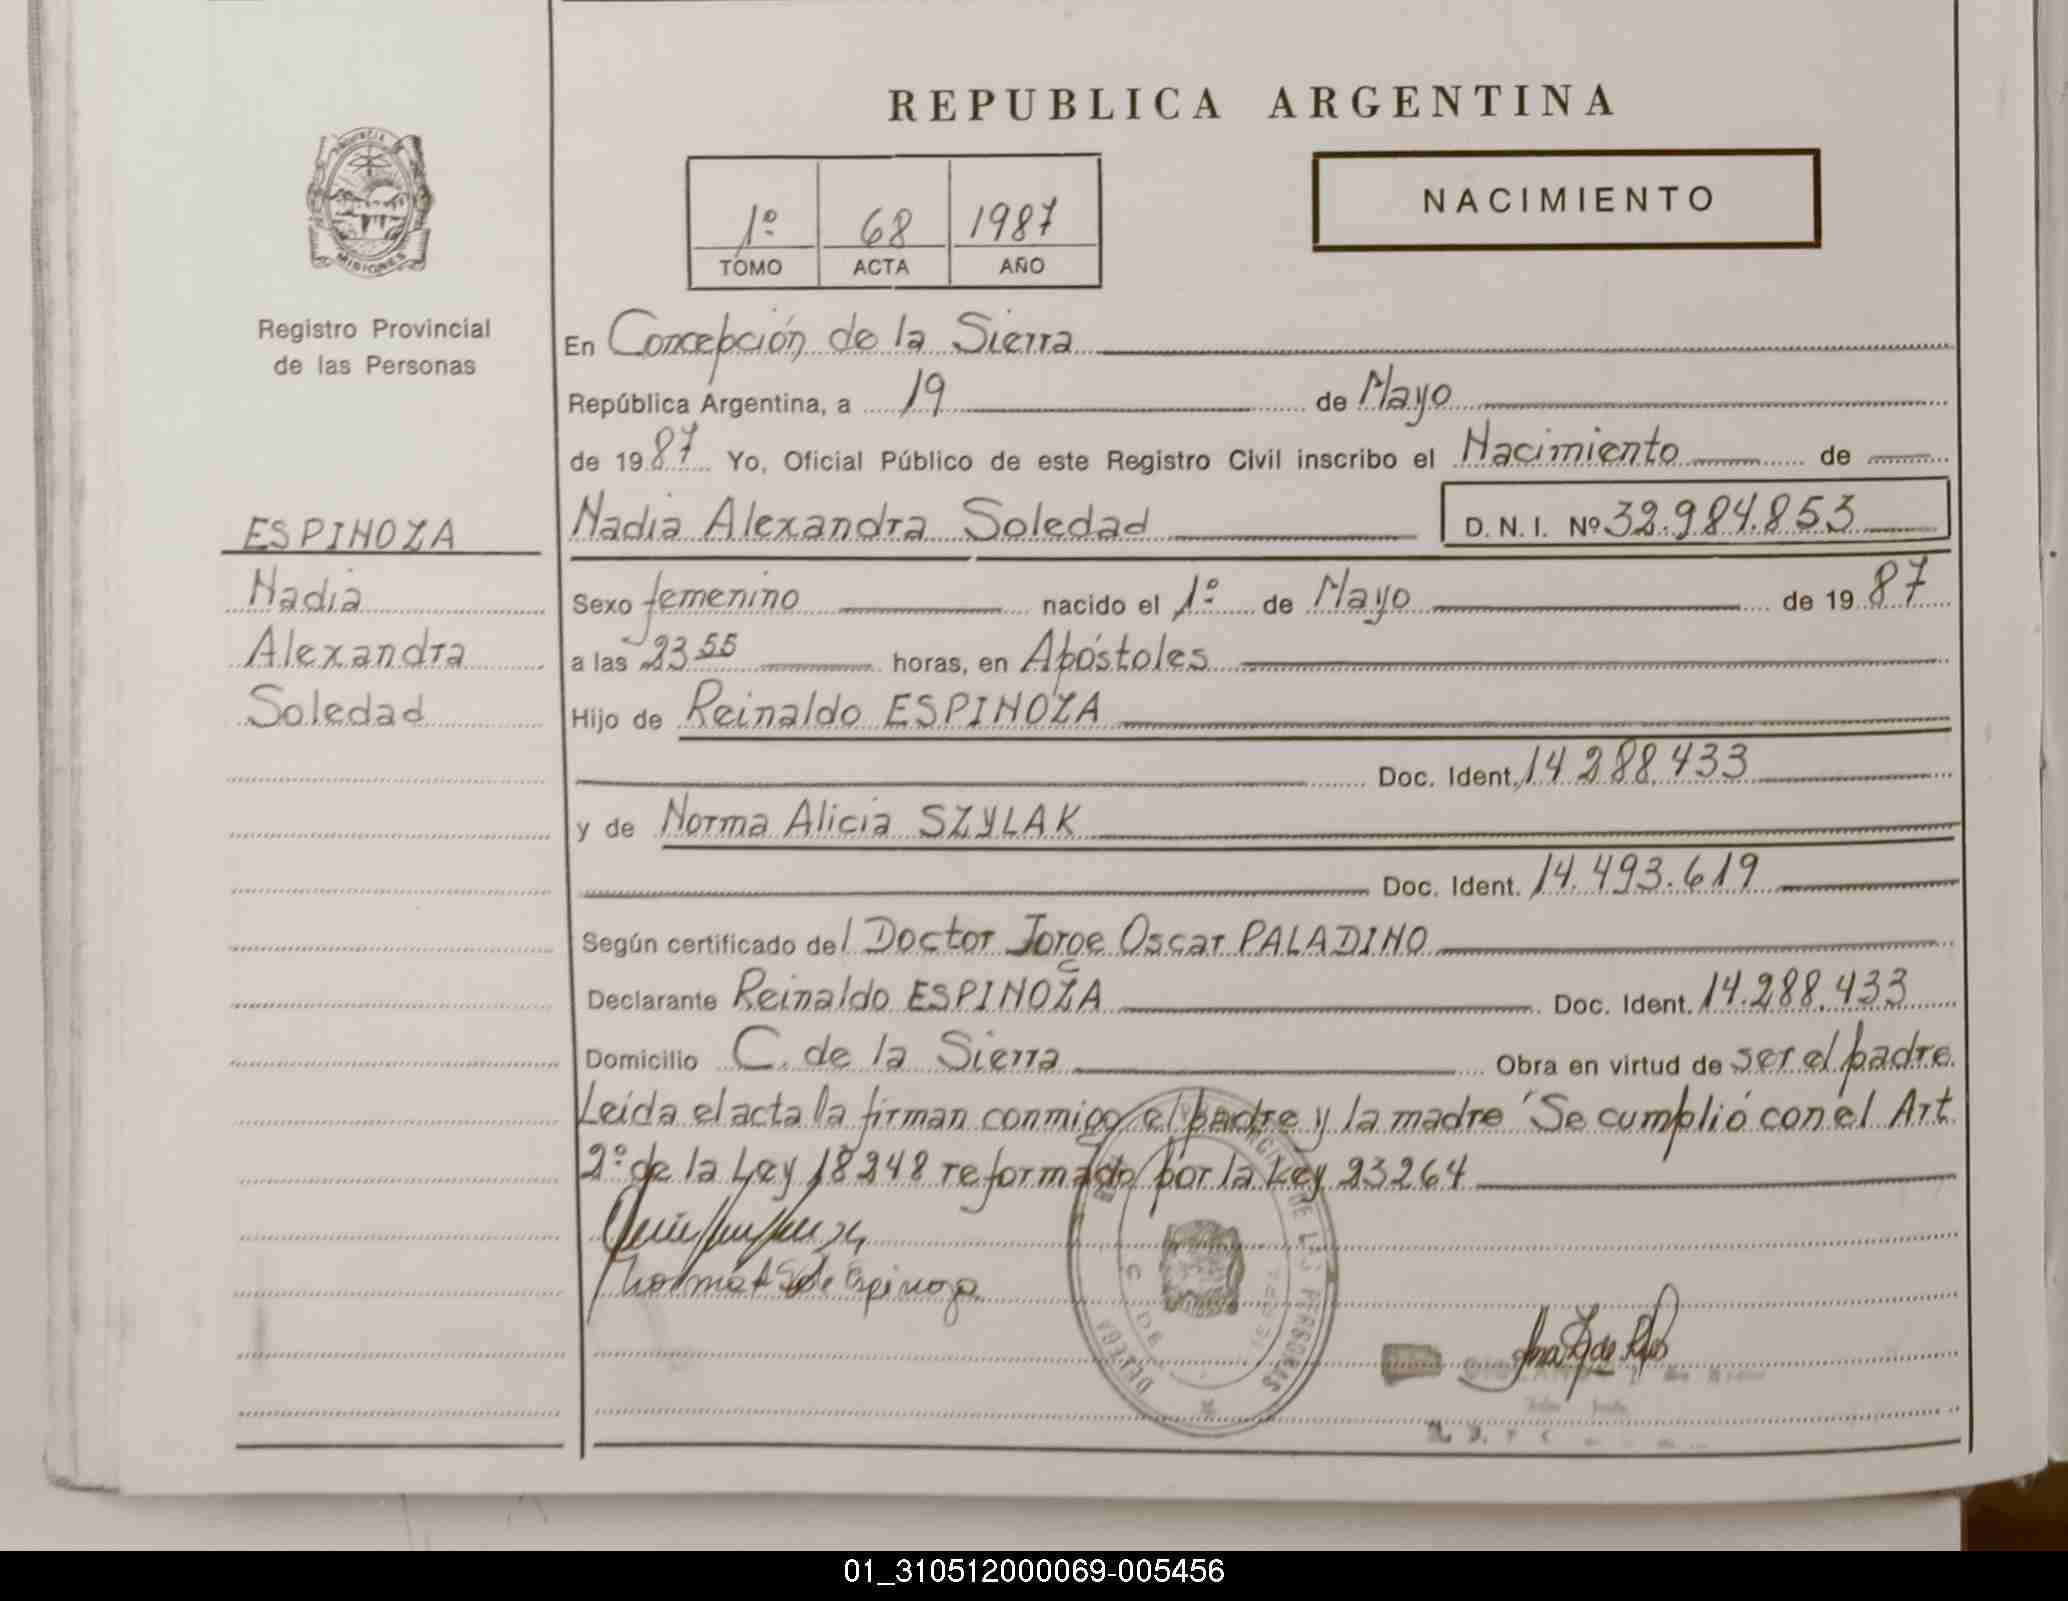 REPUBLICA ARGENTINA
PROVINCIA
MISIONES
Registro Provincial
de las Personas
1º 68 1987
TOMO ACTA AÑO
NACIMIENTO
En Concepción de la Sierra
República Argentina, a 19 de Mayo
de 1987 Yo, Oficial Público de este Registro Civil inscribo el Nacimiento de
Nadia Alexandra Soledad D. N. I. Nº 32.984.853
ESPINOZA
Nadia
Alexandra
Soledad
Sexo femenino nacido el 1º de Mayo de 1987
a las 23 55 horas, en Apóstoles
Hijo de Reinaldo ESPINOZA
Doc. Ident. 14.288.433
y de Norma Alicia SZYLAK
Doc. Ident. 14.493.619
Según certificado del Doctor Jorge Oscar PALADINO
Declarante Reinaldo ESPINOZA Doc. Ident. 14.288.433
Domicilio C. de la Sierra Obra en virtud de ser el padre.
Leída el acta la firman conmigo el padre y la madre Se cumplió con el Art.
2º de la Ley 18248 reformado por la Ley 23264
de Espinoza
DE LAS PERSONAS
01_310512000069-005456